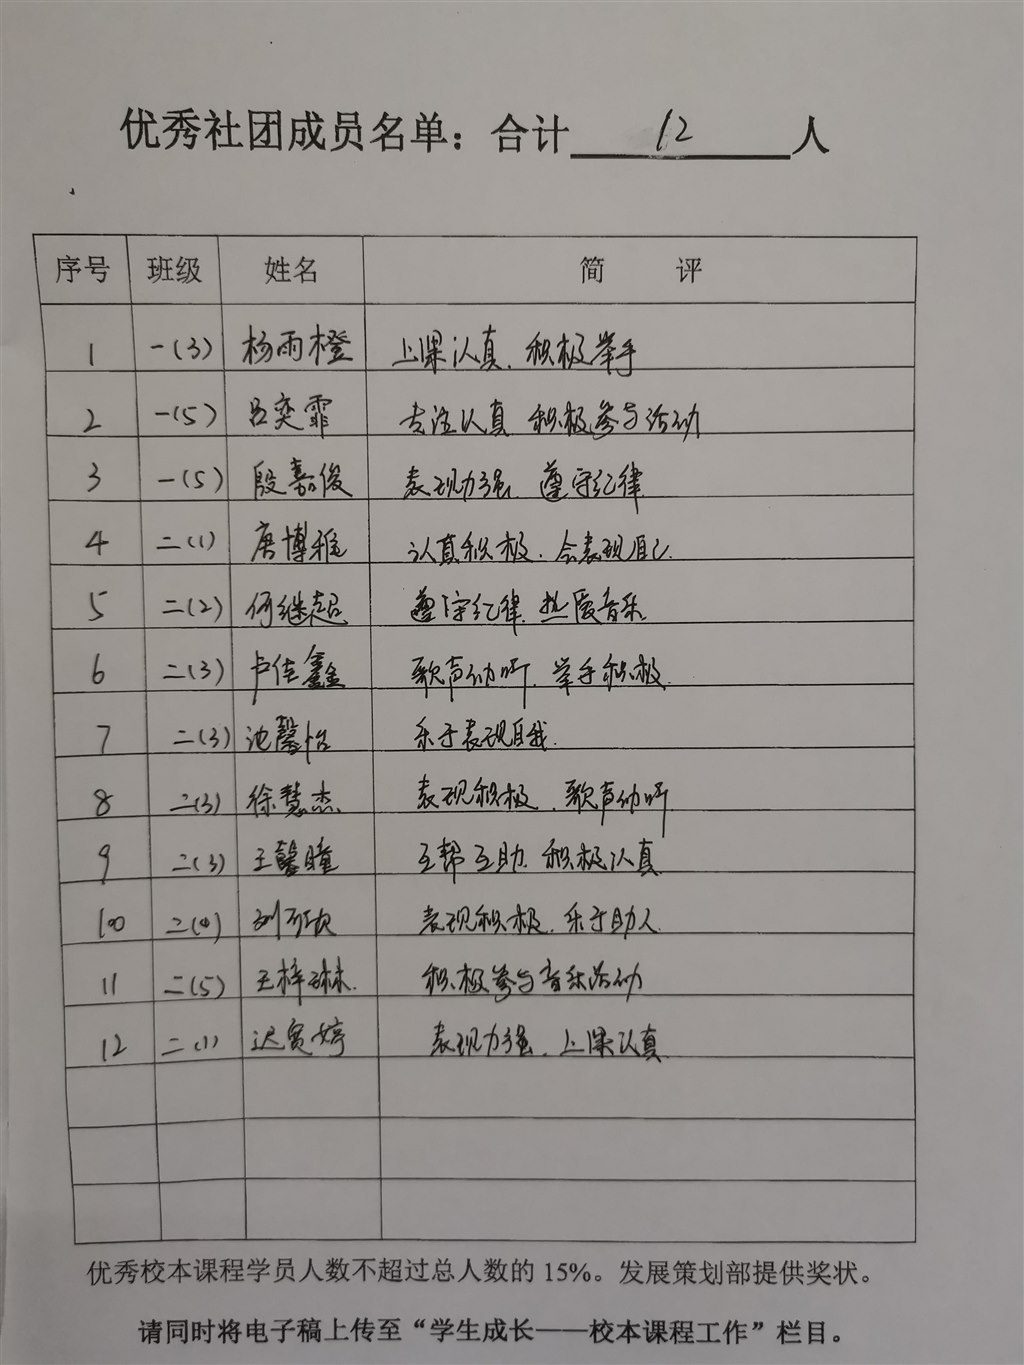 优秀社团成员名单：合计 12 人
序号 班级 姓名 简 评
1 一(3) 杨雨橙 上课认真、积极举手
2 一(5) 吕奕霏 专注认真 积极参与活动
3 一(5) 殷嘉俊 表现力强 遵守纪律
4 二(1) 唐博雅 认真积极、会表现自己.
5 二(2) 何继超 遵守纪律 热爱音乐
6 二(3) 卢佳鑫 歌声动听、举手积极.
7 二(3) 池馨怡 乐于表现自我.
8 二(3) 徐慧杰 表现积极、歌声动听
9 二(3) 王馨瞳 互帮互助、积极认真
10 表现积极、乐于助人
11 二(5) 王梓琳. 积极参与音乐活动
12 二(1) 表现力强、上课认真
优秀校本课程学员人数不超过总人数的 15%。发展策划部提供奖状。
请同时将电子稿上传至“学生成长——校本课程工作”栏目。